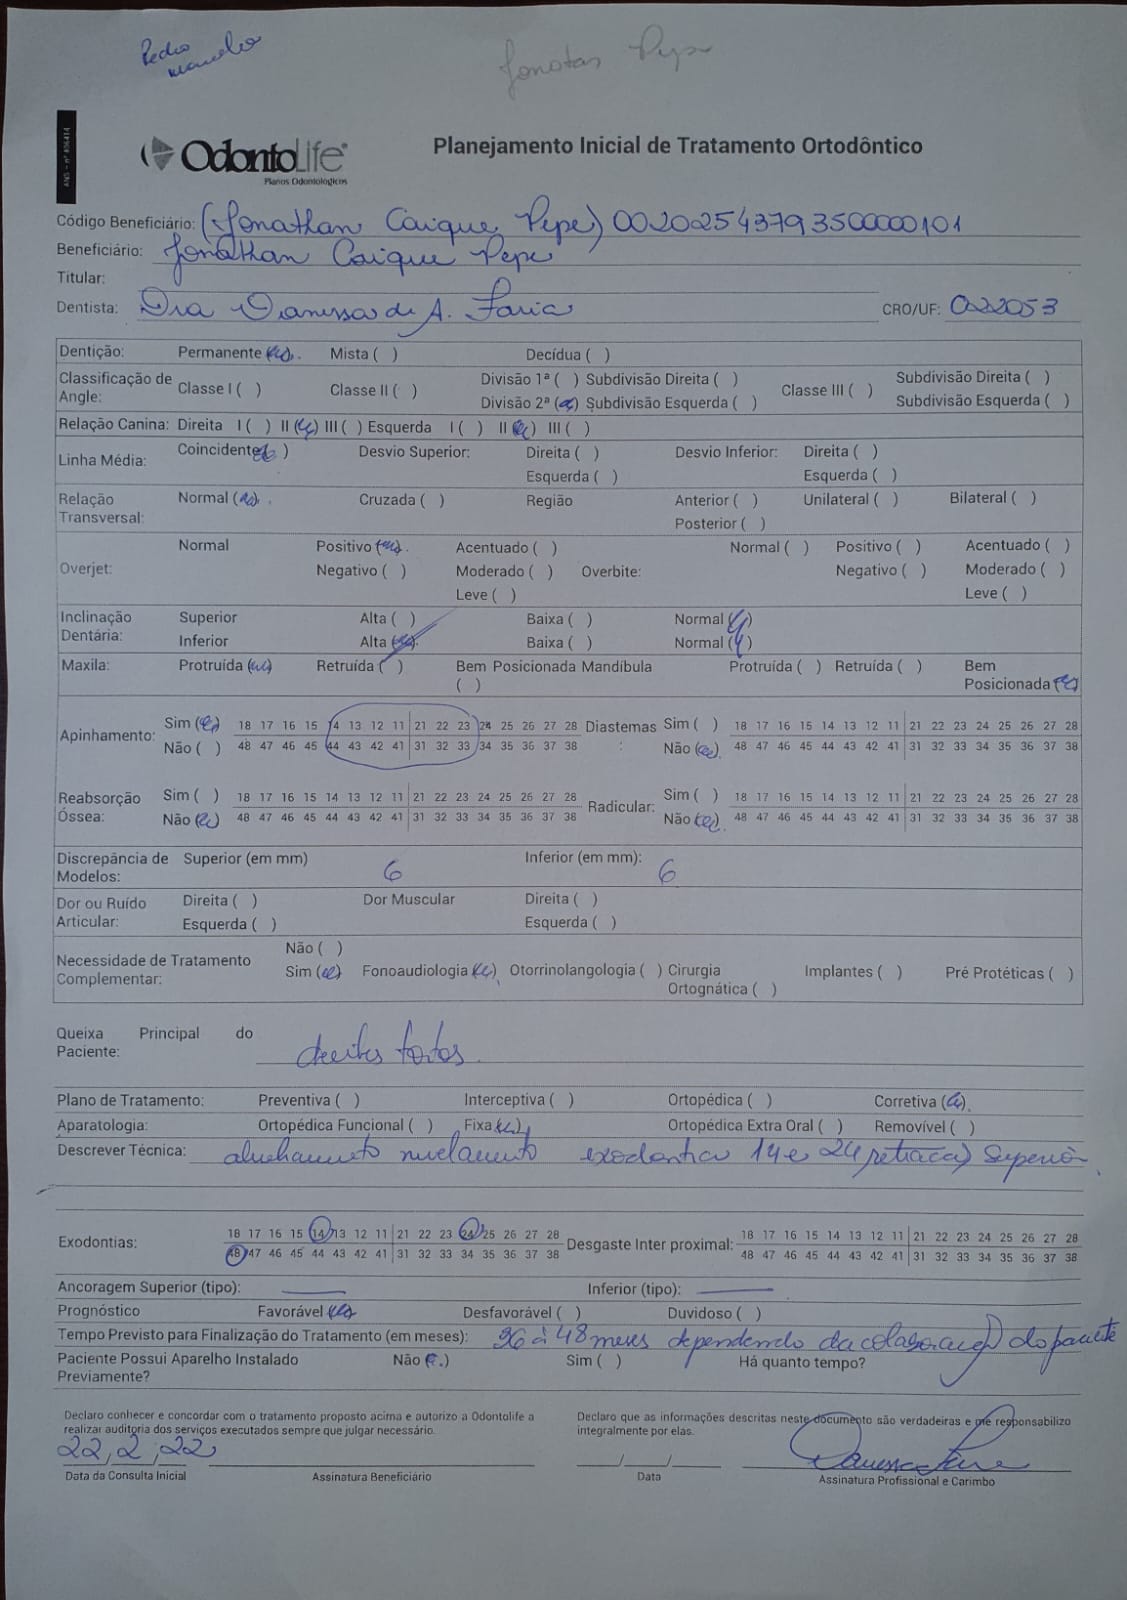 Pedro
Jonatas Pepe
ANS - nº 406414
OdontoLife
Planos Odontológicos
Planejamento Inicial de Tratamento Ortodôntico
Código Beneficiário: (Jonathan Caique Pepe) 00202543793500000101
Beneficiário: Jonathan Caique Pepe
Titular:
Dentista: Dra Vanessa de A. Faria CRO/UF: 022053
Dentição: Permanente ( ) Mista ( ) Decídua ( )
Classificação de Angle: Classe I ( ) Classe II ( ) Divisão 1ª ( ) Subdivisão Direita ( ) Classe III ( ) Subdivisão Direita ( )
Divisão 2ª ( ) Subdivisão Esquerda ( ) Subdivisão Esquerda ( )
Relação Canina: Direita I ( ) II ( ) III ( ) Esquerda I ( ) II ( ) III ( )
Linha Média: Coincidente ( ) Desvio Superior: Direita ( ) Desvio Inferior: Direita ( )
Esquerda ( ) Esquerda ( )
Relação Transversal: Normal ( ) Cruzada ( ) Região Anterior ( ) Unilateral ( ) Bilateral ( )
Posterior ( )
Normal Positivo ( ) Acentuado ( ) Normal ( ) Positivo ( ) Acentuado ( )
Overjet: Negativo ( ) Moderado ( ) Overbite: Negativo ( ) Moderado ( )
Leve ( ) Leve ( )
Inclinação Superior Alta ( ) Baixa ( ) Normal ( )
Dentária: Inferior Alta ( ) Baixa ( ) Normal ( )
Maxila: Protruída ( ) Retruída ( ) Bem Posicionada ( ) Mandíbula Protruída ( ) Retruída ( ) Bem Posicionada ( )
Apinhamento: Sim ( ) 18 17 16 15 14 13 12 11 21 22 23 24 25 26 27 28 Diastemas: Sim ( ) 18 17 16 15 14 13 12 11 21 22 23 24 25 26 27 28
Não ( ) 48 47 46 45 44 43 42 41 31 32 33 34 35 36 37 38 Não ( ) 48 47 46 45 44 43 42 41 31 32 33 34 35 36 37 38
Reabsorção Óssea: Sim ( ) 18 17 16 15 14 13 12 11 21 22 23 24 25 26 27 28 Radicular: Sim ( ) 18 17 16 15 14 13 12 11 21 22 23 24 25 26 27 28
Não ( ) 48 47 46 45 44 43 42 41 31 32 33 34 35 36 37 38 Não ( ) 48 47 46 45 44 43 42 41 31 32 33 34 35 36 37 38
Discrepância de Modelos: Superior (em mm) 6 Inferior (em mm): 6
Dor ou Ruído Articular: Direita ( ) Dor Muscular Direita ( )
Esquerda ( ) Esquerda ( )
Necessidade de Tratamento Complementar: Não ( )
Sim ( ) Fonoaudiologia ( ) Otorrinolangologia ( ) Cirurgia Ortognática ( ) Implantes ( ) Pré Protéticas ( )
Queixa Principal do Paciente: dentes tortos.
Plano de Tratamento: Preventiva ( ) Interceptiva ( ) Ortopédica ( ) Corretiva ( )
Aparatologia: Ortopédica Funcional ( ) Fixa ( ) Ortopédica Extra Oral ( ) Removível ( )
Descrever Técnica: alinhamento nivelamento exodontia 14 e 24 retração superior
Exodontias: 18 17 16 15 14 13 12 11 21 22 23 24 25 26 27 28 Desgaste Inter proximal: 18 17 16 15 14 13 12 11 21 22 23 24 25 26 27 28
48 47 46 45 44 43 42 41 31 32 33 34 35 36 37 38 48 47 46 45 44 43 42 41 31 32 33 34 35 36 37 38
Ancoragem Superior (tipo): Inferior (tipo):
Prognóstico Favorável ( ) Desfavorável ( ) Duvidoso ( )
Tempo Previsto para Finalização do Tratamento (em meses): 36 à 48 meses dependendo da colaboração do paciente
Paciente Possui Aparelho Instalado Previamente? Não ( ) Sim ( ) Há quanto tempo?
Declaro conhecer e concordar com o tratamento proposto acima e autorizo a Odontolife a
realizar auditoria dos serviços executados sempre que julgar necessário.
Declaro que as informações descritas neste documento são verdadeiras e me responsabilizo
integralmente por elas.
22/2/22
Data da Consulta Inicial Assinatura Beneficiário Data Assinatura Profissional e Carimbo